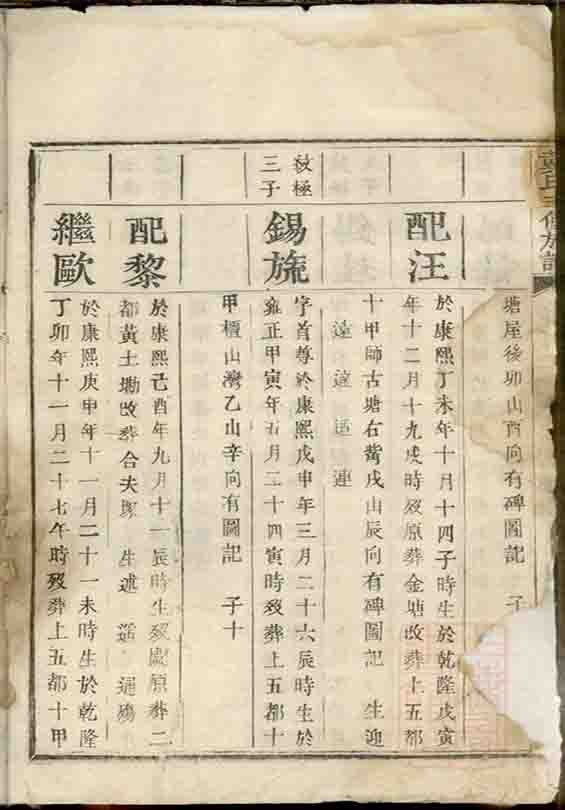 氏三修族譜
塘屋後卯山酉向有碑圖記 子
配汪
於康熙丁未年十月十四子時生於乾隆戊寅
年十二月十九戌時歿原葬金塘改葬上五都
十甲師古塘右背戌山辰向有碑圖記 生迎
遠 達 适 連
敘極
三子
錫旒
字首尊於康熙戊申年三月二十六辰時生於
雍正甲寅年五月二十四寅時歿葬上五都十
甲櫃山灣乙山辛向有圖記 子十
配黎
於康熙己酉年九月十一辰時生歿闕原葬二
都黃土坳改葬合夫塚 生述 遙 通殤
繼歐
於康熙庚申年十一月二十一未時生於乾隆
丁卯年十一月二十七午時歿葬上五都十甲